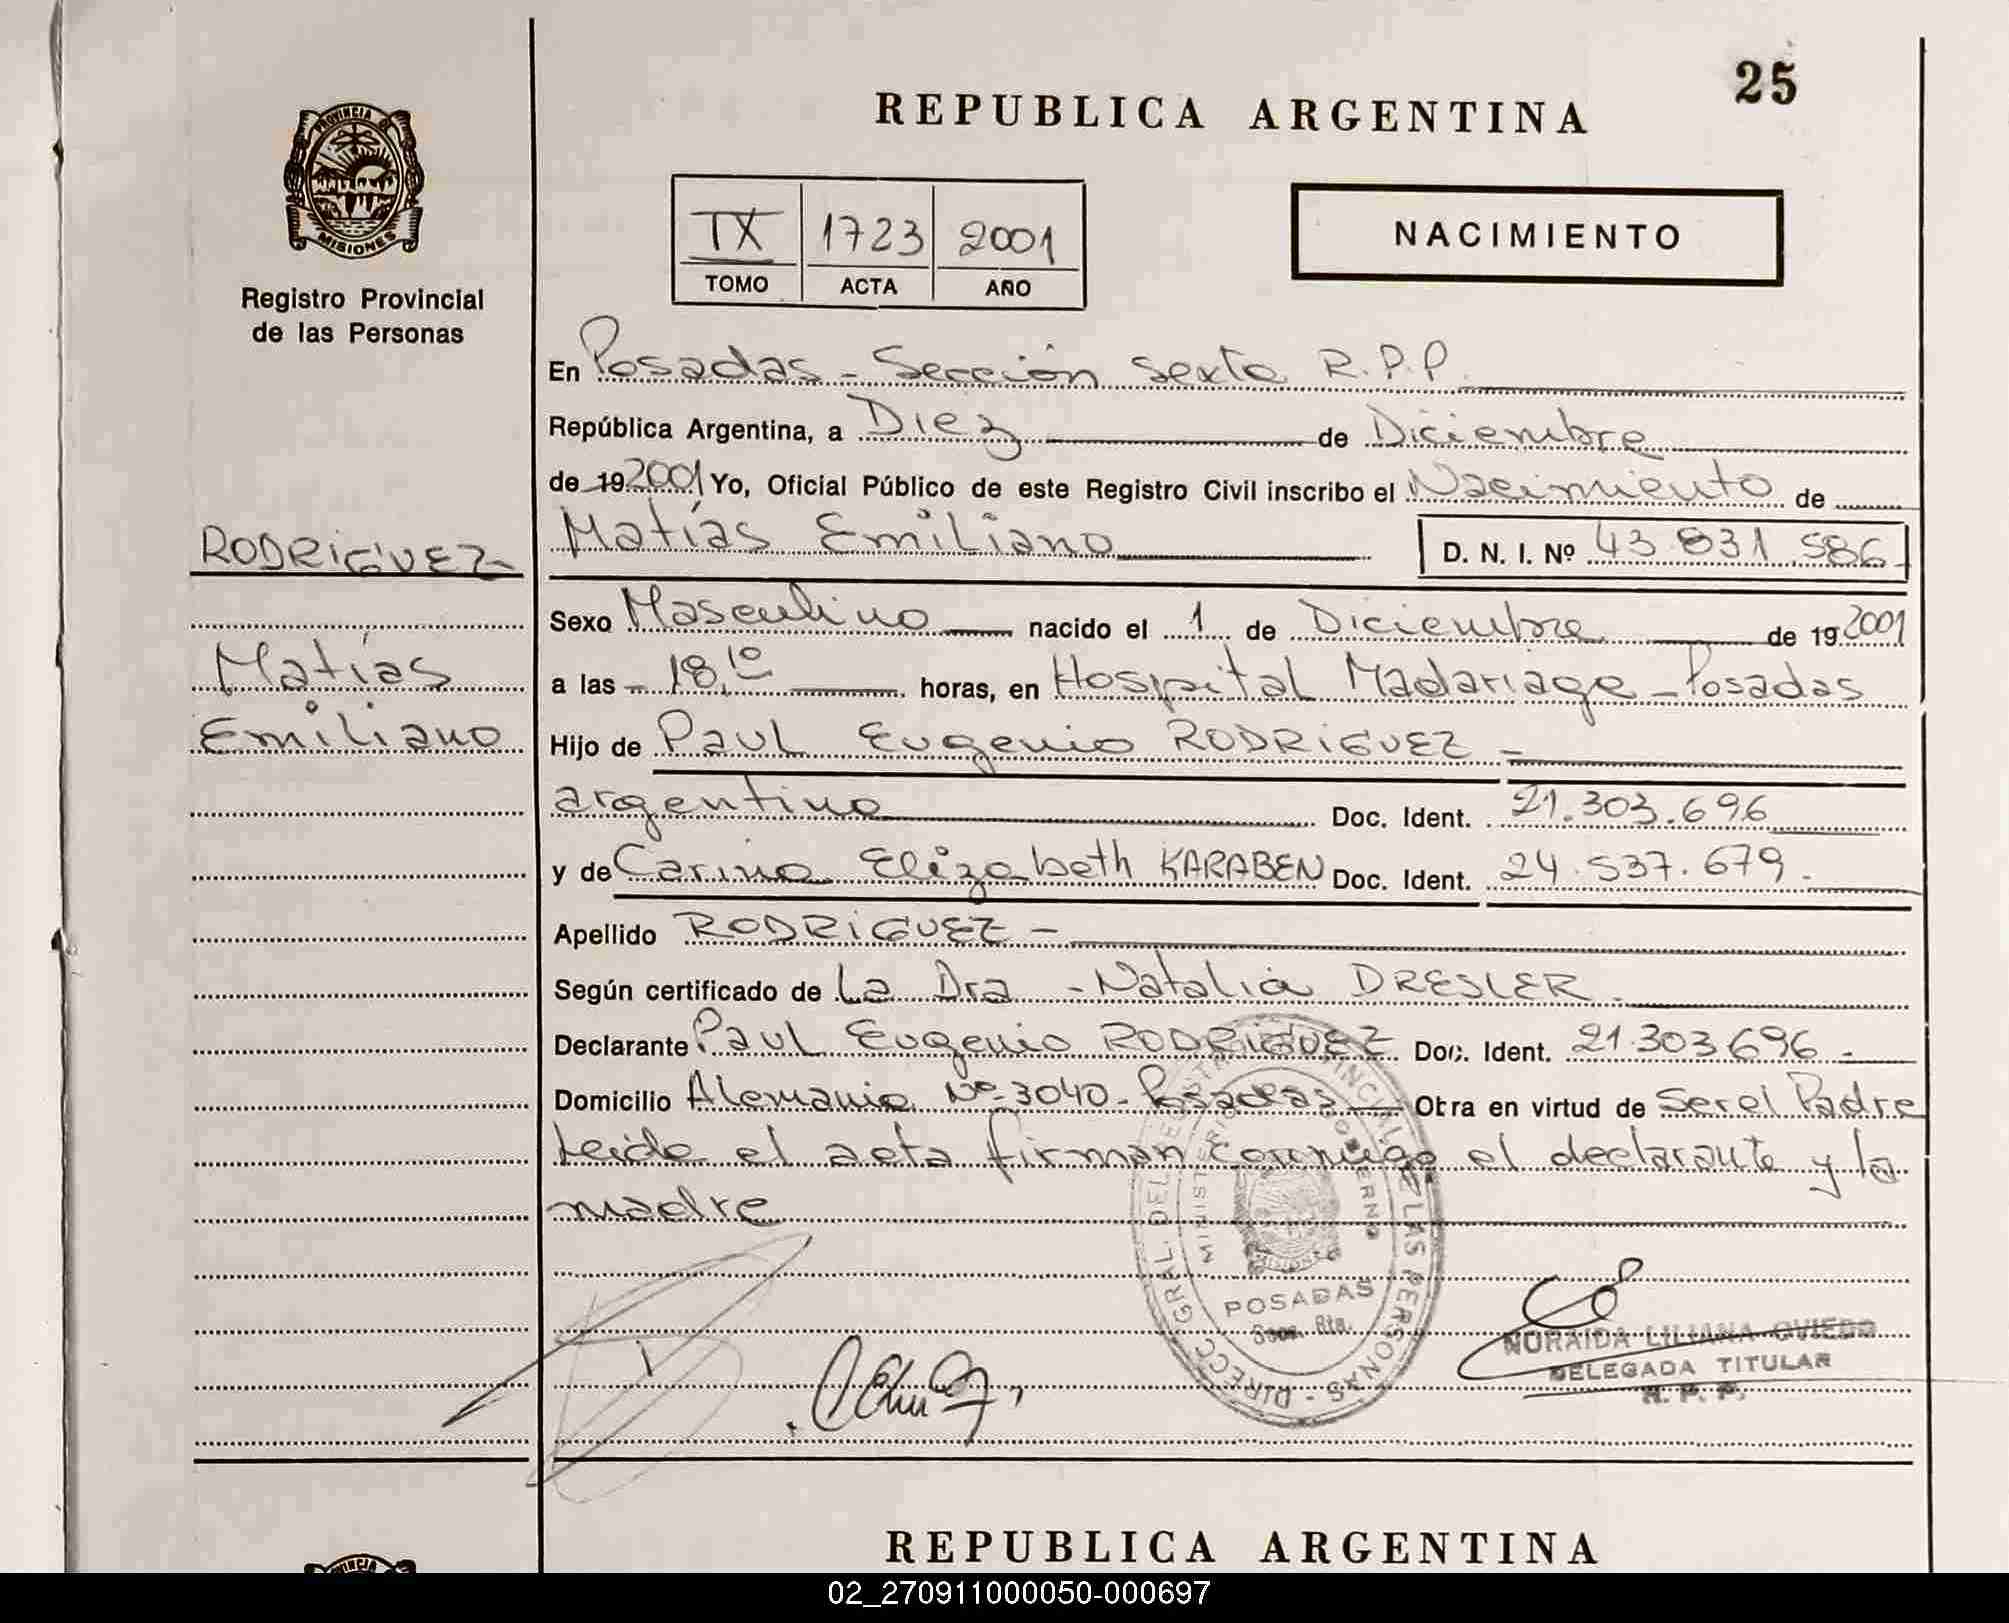 25
REPUBLICA ARGENTINA
PROVINCIA DE
MISIONES
Registro Provincial
de las Personas
TX 1723 2001
TOMO ACTA AÑO
NACIMIENTO
En Posadas - Sección Sexta R.P.P.
República Argentina, a Diez de Diciembre
de 19 2001 Yo, Oficial Público de este Registro Civil inscribo el Nacimiento de
RODRIGUEZ- Matías Emiliano D. N. I. Nº 43.831.586
Sexo Masculino nacido el 1 de Diciembre de 19 2001
Matías a las 18,10 horas, en Hospital Madariaga - Posadas
Emiliano Hijo de Paul Eugenio RODRIGUEZ -
argentino Doc. Ident. 21.303.696
y de Carina Elizabeth KARABEN Doc. Ident. 24.537.679.
Apellido RODRIGUEZ -
Según certificado de La Dra - Natalia DRESLER.
Declarante Paul Eugenio RODRIGUEZ Doc. Ident. 21.303.696 -
Domicilio Alemania Nº 3040 - Posadas Obra en virtud de Ser el Padre
Leida el acta firman conmigo el declarante y la
madre
DIRECC. GRAL. DEL REGISTRO PROVINCIAL DE LAS PERSONAS
MINISTERIO GOBIERNO
MISIONES
POSADAS
NORAIDA LILIANA OVIEDO
DELEGADA TITULAR
R. P. P.
REPUBLICA ARGENTINA
02_270911000050-000697